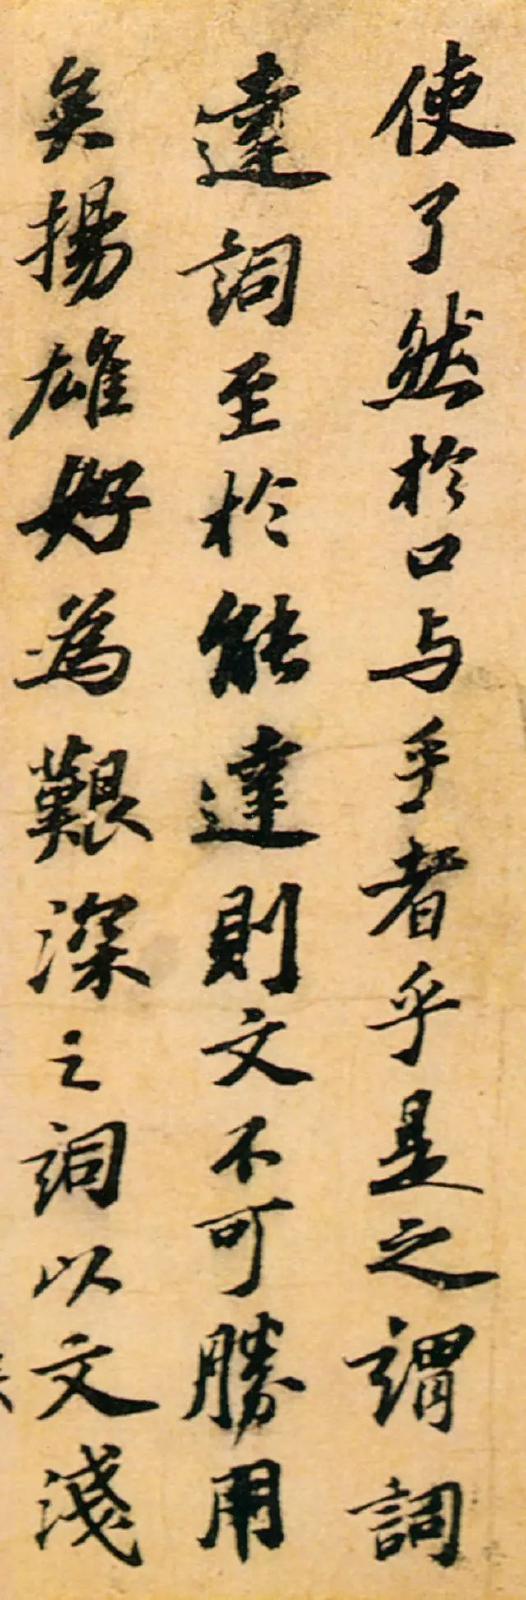 使了然於口与手者乎是之謂詞
達詞至於能達則文不可勝用
矣揚雄好為艱深之詞以文淺